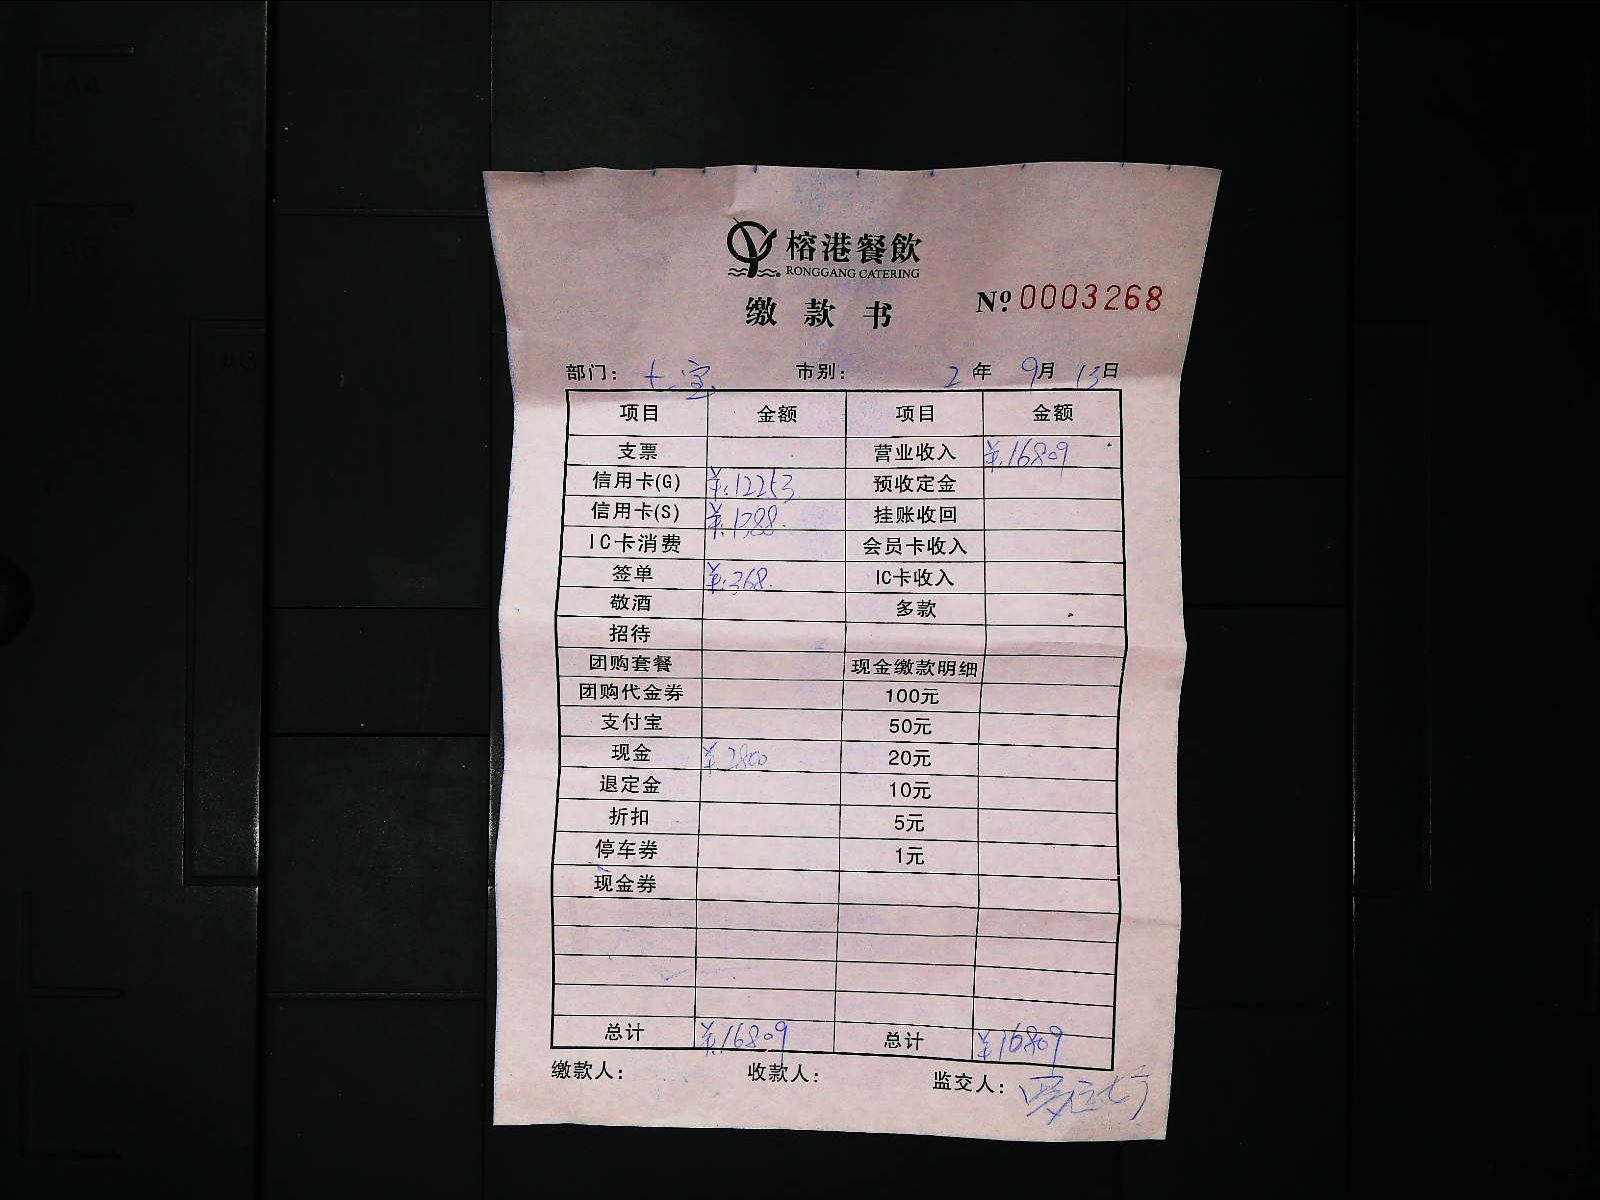 榕港餐飲
RONGGANG CATERING
缴款书 No 0003268
部门: 七宝 市别: 2年 9月 13日
项目 金额 项目 金额
支票 营业收入 ¥16809
信用卡(G) ¥12253 预收定金
信用卡(S) ¥1388 挂账收回
IC卡消费 会员卡收入
签单 ¥368 IC卡收入
敬酒 多款
招待
团购套餐 现金缴款明细
团购代金券 100元
支付宝 50元
现金 ¥2800 20元
退定金 10元
折扣 5元
停车券 1元
现金券
总计 ¥16809 总计 ¥16809
缴款人: 收款人: 监交人: